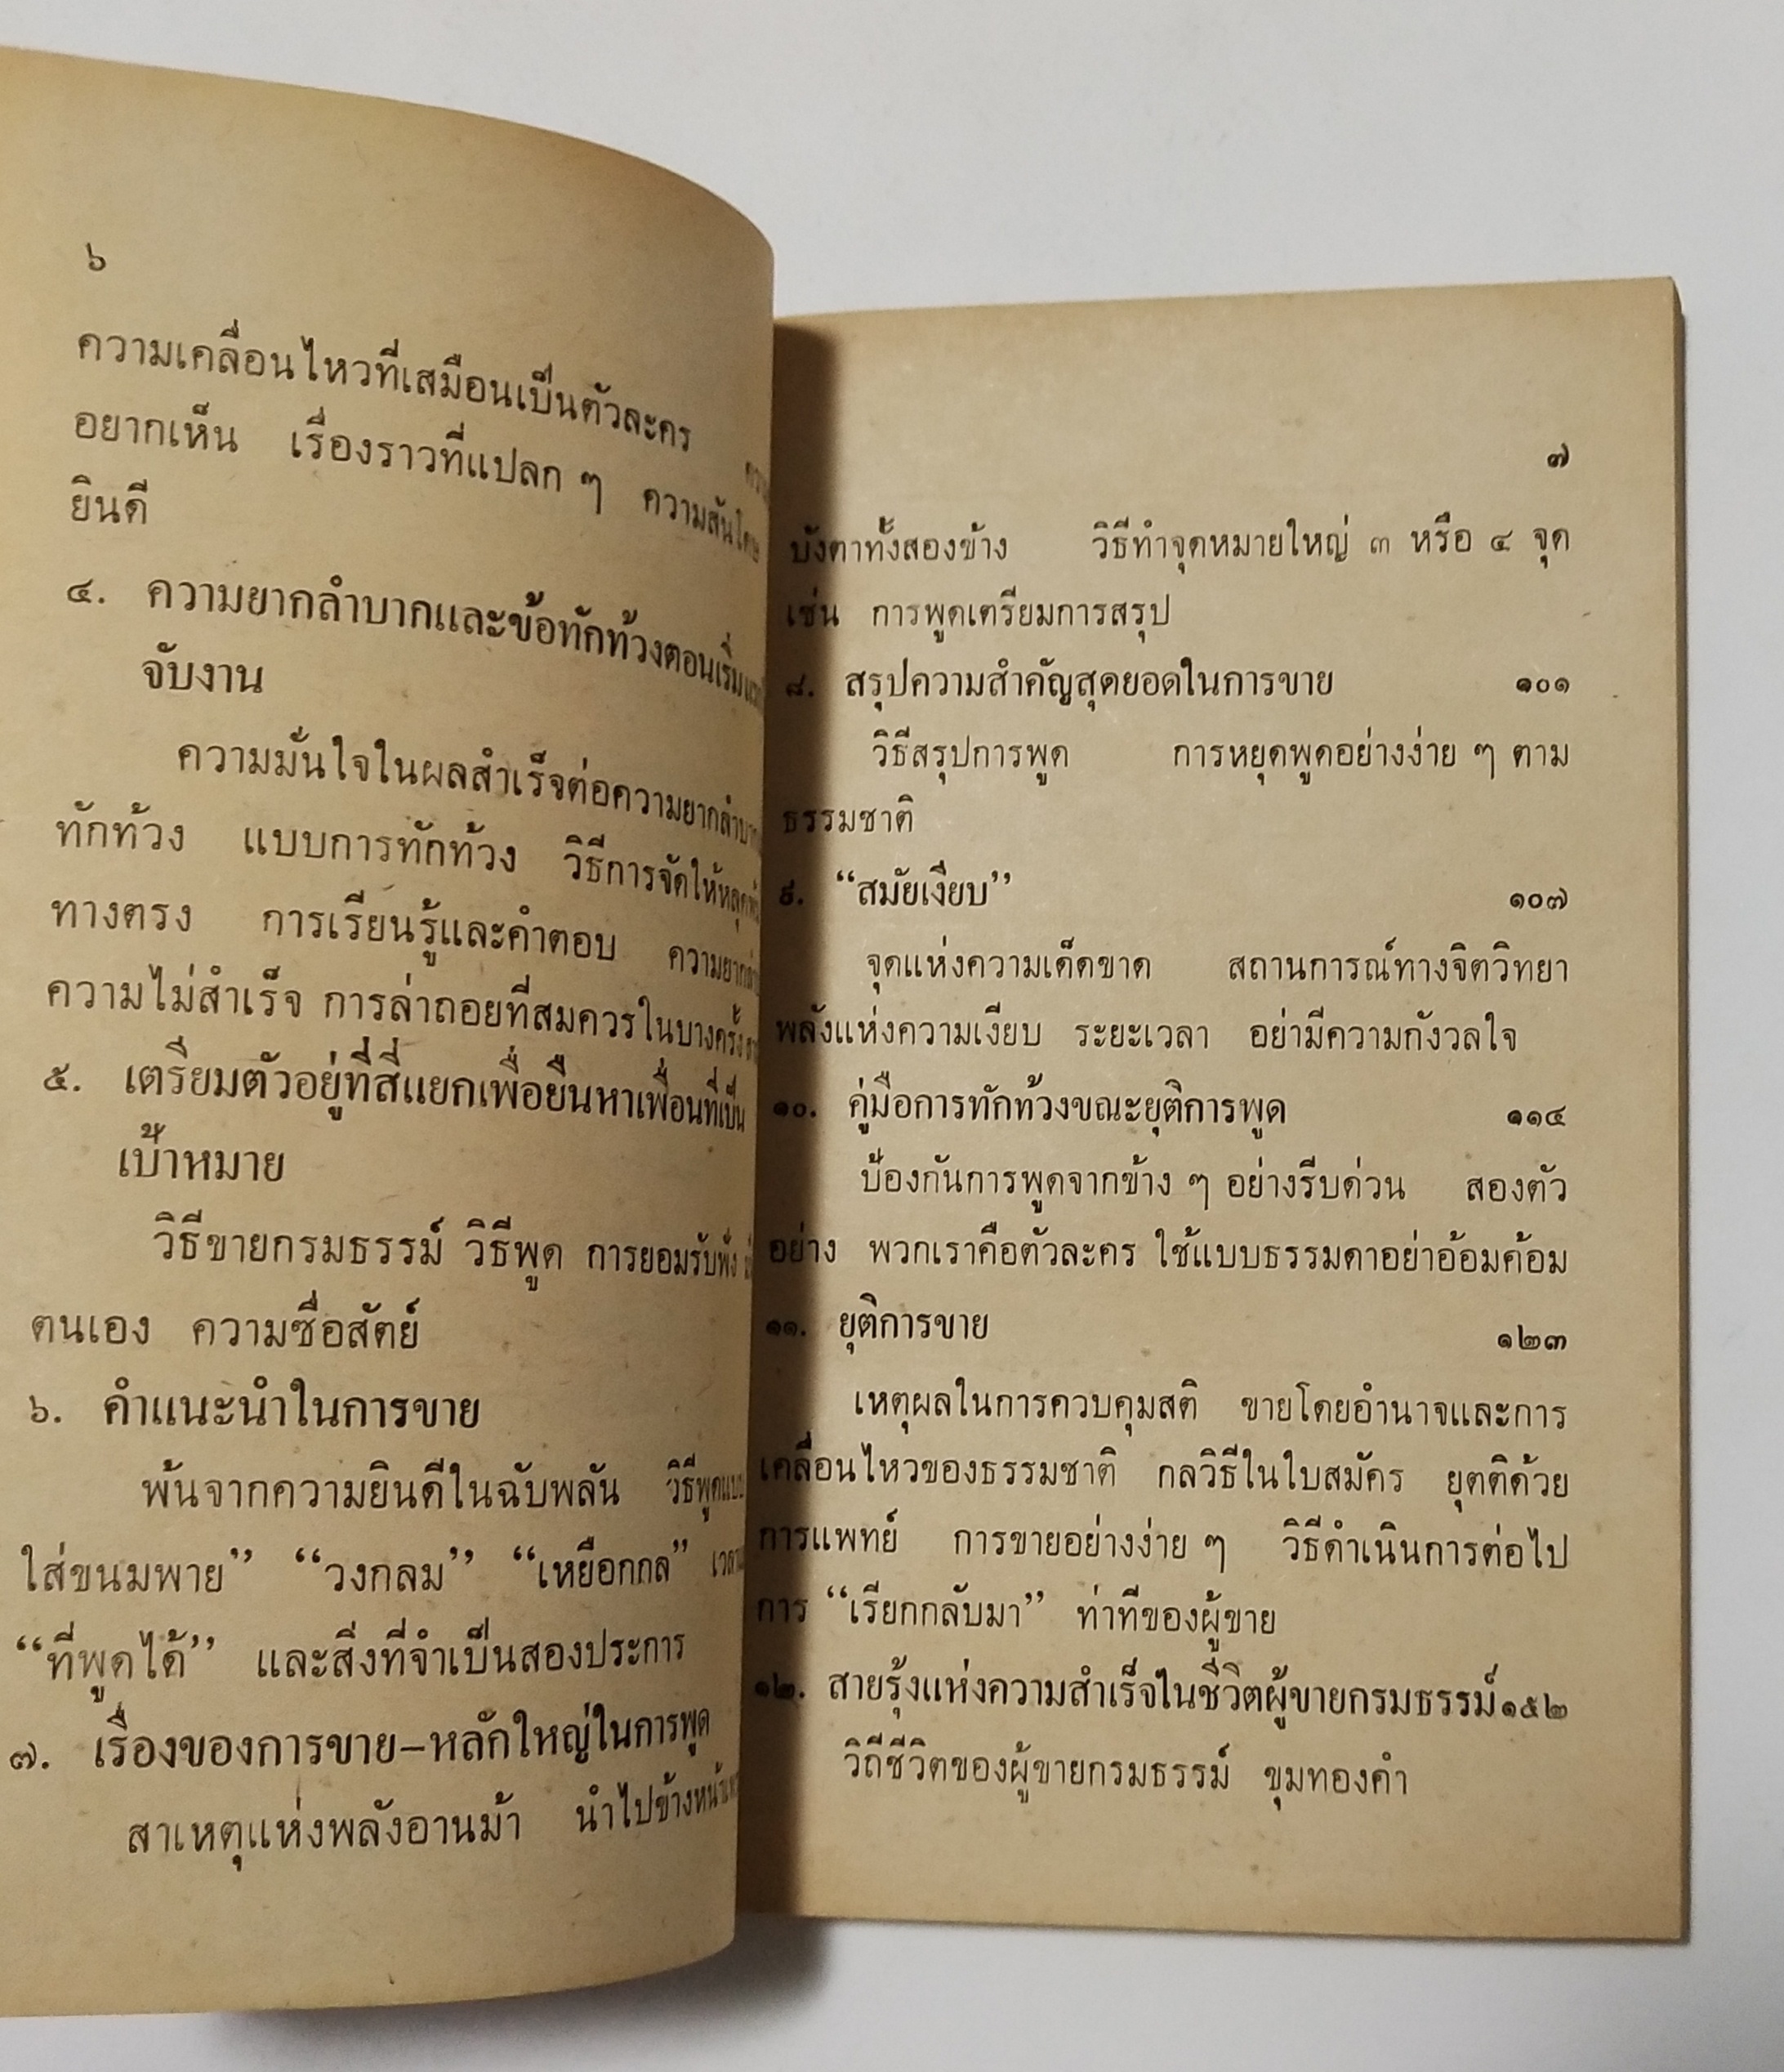 ๖
ความเคลื่อนไหวที่เสมือนเป็นตัวละคร
อยากเห็น เรื่องราวที่แปลก ๆ ความสันโดษ
ยินดี
๔. ความยากลำบากและข้อทักท้วงตอนเริ่ม
จับงาน
ความมั่นใจในผลสำเร็จต่อความยากลำบาก
ทักท้วง แบบการทักท้วง วิธีการจัดให้หลุดพ้น
ทางตรง การเรียนรู้และคำตอบ ความยาก
ความไม่สำเร็จ การล่าถอยที่สมควรในบางครั้ง
๕. เตรียมตัวอยู่ที่สี่แยกเพื่อยืนหาเพื่อนที่เป็น
เป้าหมาย
วิธีขายกรมธรรม์ วิธีพูด การยอมรับฟัง
ตนเอง ความซื่อสัตย์
๖. คำแนะนำในการขาย
พ้นจากความยินดีในฉับพลัน วิธีพูดแบบ
ใส่ขนมพาย” “วงกลม” “เหยือกกล”
“ที่พูดได้” และสิ่งที่จำเป็นสองประการ
๗. เรื่องของการขาย–หลักใหญ่ในการพูด
สาเหตุแห่งพลังอานม้า นำไปข้างหน้า
๗
บังตาทั้งสองข้าง วิธีทำจุดหมายใหญ่ ๓ หรือ ๔ จุด
เช่น การพูดเตรียมการสรุป
๘. สรุปความสำคัญสุดยอดในการขาย ๑๐๑
วิธีสรุปการพูด การหยุดพูดอย่างง่าย ๆ ตาม
ธรรมชาติ
๙. “สมัยเงียบ” ๑๐๗
จุดแห่งความเด็ดขาด สถานการณ์ทางจิตวิทยา
พลังแห่งความเงียบ ระยะเวลา อย่ามีความกังวลใจ
๑๐. คู่มือการทักท้วงขณะยุติการพูด ๑๑๔
ป้องกันการพูดจากข้าง ๆ อย่างรีบด่วน สองตัว
อย่าง พวกเราคือตัวละคร ใช้แบบธรรมดาอย่าอ้อมค้อม
๑๑. ยุติการขาย ๑๒๓
เหตุผลในการควบคุมสติ ขายโดยอำนาจและการ
เคลื่อนไหวของธรรมชาติ กลวิธีในใบสมัคร ยุตติด้วย
การแพทย์ การขายอย่างง่าย ๆ วิธีดำเนินการต่อไป
การ “เรียกกลับมา” ท่าทีของผู้ขาย
๑๒. สายรุ้งแห่งความสำเร็จในชีวิตผู้ขายกรมธรรม์ ๑๕๒
วิถีชีวิตของผู้ขายกรมธรรม์ ขุมทองคำ